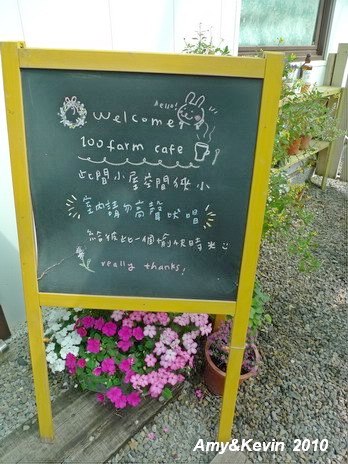 Hello!
Welcome
100 farm cafe
此間小屋空間使小
室內請勿高聲吠唱
給彼此一個愉快時光
really thanks!
Amy&Kevin 2010